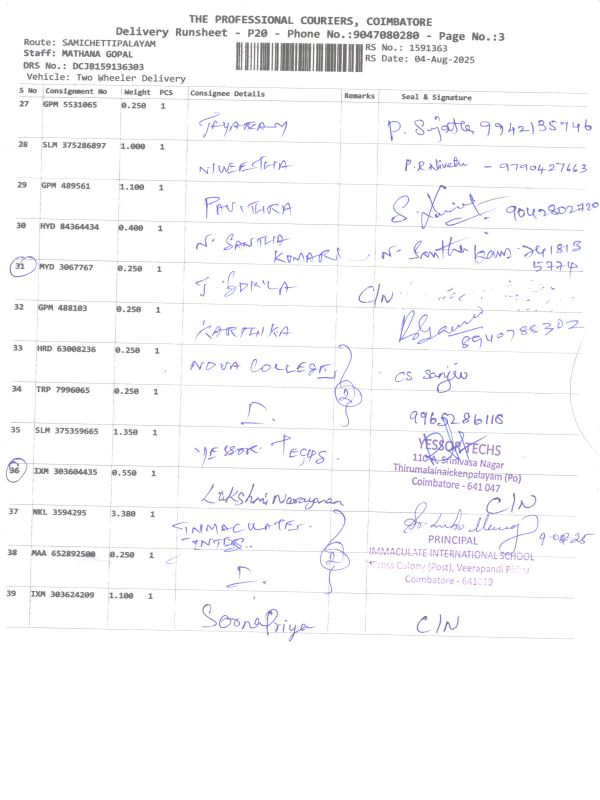 THE PROFESSIONAL COURIERS, COIMBATORE
Delivery Runsheet - P20 - Phone No.:9047080280 - Page No.:3
Route: SAMICHETTIPALAYAM
Staff: MATHANA GOPAL
DRS No.: DCJB159136303
Vehicle: Two Wheeler Delivery
RS No.: 1591363
RS Date: 04-Aug-2025
S No Consignment No Weight PCS Consignee Details Remarks Seal & Signature
27 GPM 5531065 0.250 1
JAYARAM P. Sujatha 9942135746
28 SLM 375286897 1.000 1
NIVEETHA P.R Nivetha - 9790427663
29 GPM 489561 1.100 1
PAVITHRA 9042802720
30 HYD 84364434 0.400 1
N. SANTHA KUMARI N. Santha
31 MYD 3067767 0.250 1
C/N
32 GPM 488103 0.250 1
KARTHIKA 8940788302
33 HRD 63008236 0.250 1
NOVA COLLEGE CS Sanjeev
34 TRP 7996065 0.250 1
2
9965286118
35 SLM 375359665 1.350 1
YESSOR TECHS.
YESSOR TECHS
Srinivasa Nagar
Thirumalainaickenpalayam (Po)
Coimbatore - 641 047
36 IXM 303604435 0.550 1
Lakshmi Narayanan C/N
37 NKL 3594295 3.380 1
IMMACULATE INTER..
PRINCIPAL
IMMACULATE INTERNATIONAL SCHOOL
Press Colony (Post), Veerapandi
Coimbatore - 641019
38 MAA 652892500 0.250 1
2
39 IXM 303624209 1.100 1
SoornaPriya C/N